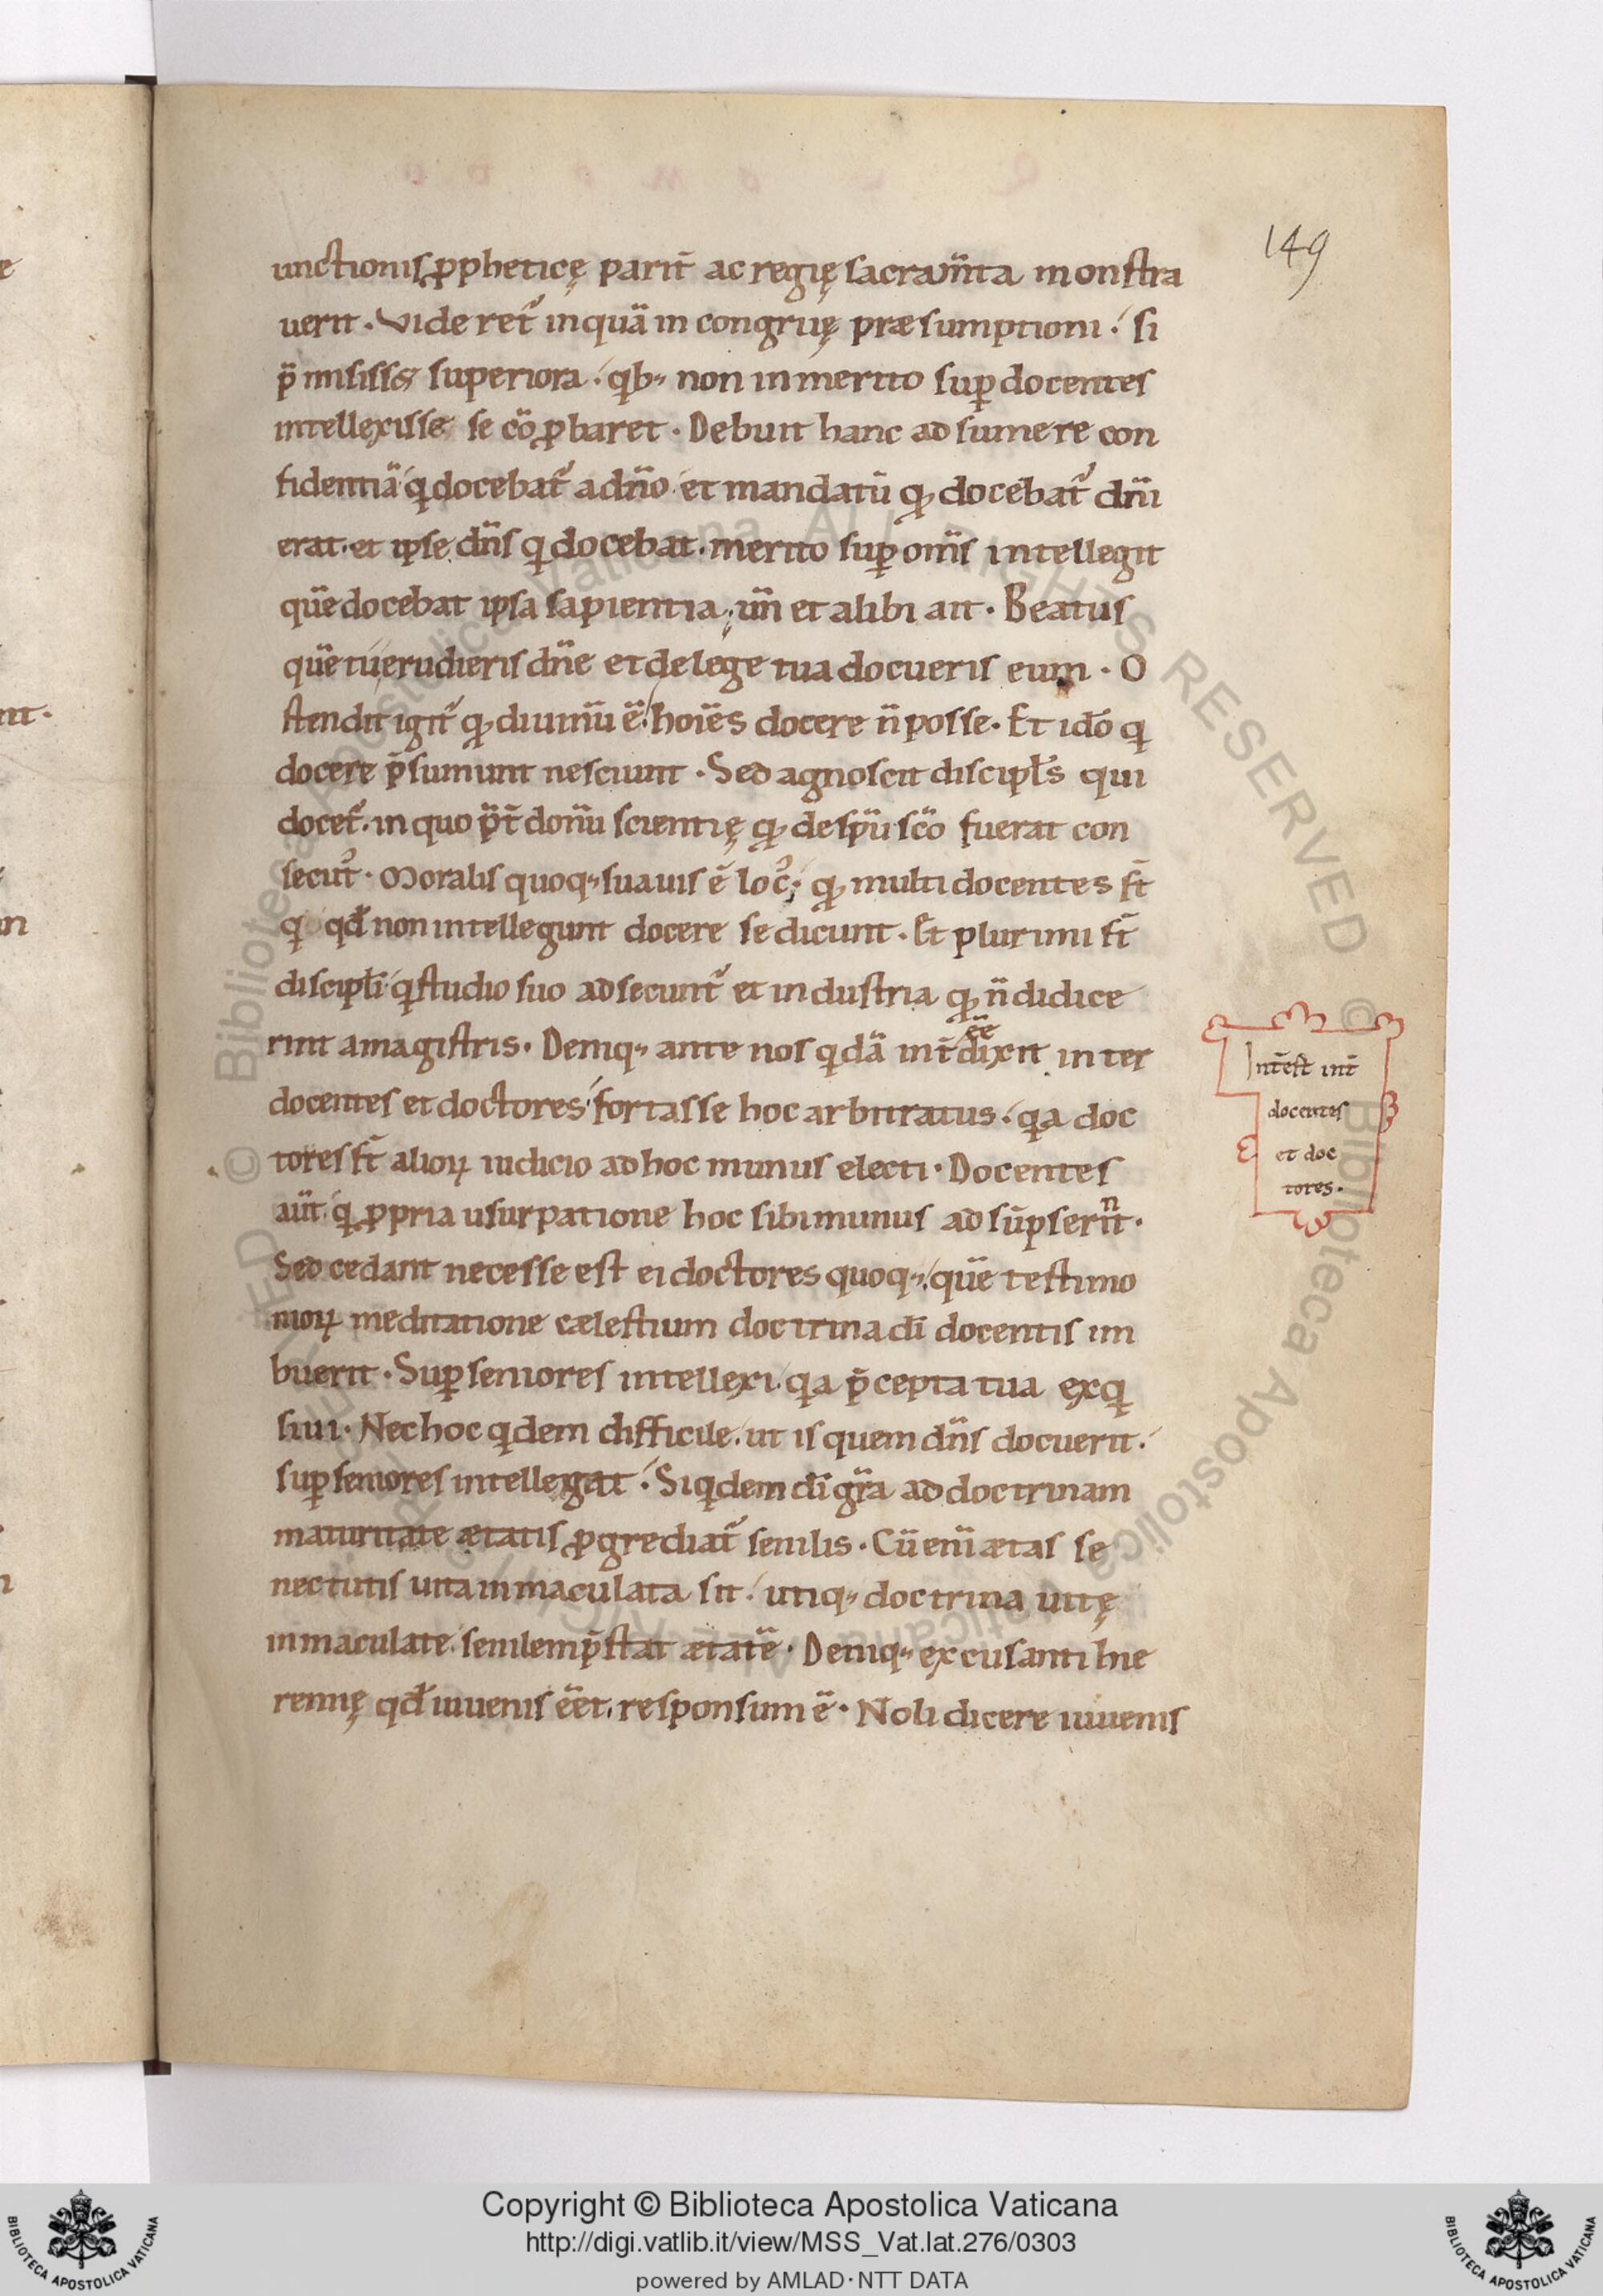 149
unctionis ꝓpheticę parit̄ ac regię sacram̄ta monstra
uerit. Videret᷑ inquā incongruę præsumptioni. si
p̄misisset superiora. qb; non inmerito suꝑ docentes
intellexisse se cōꝓbaret. Debuit hanc adsumere con
fidentiā q docebat᷑ a dn̄o. et mandatū qđ docebat᷑ dn̄i
erat. et ipse dn̄s q docebat. merito suꝑ om̄s intellegit
quē docebat ipsa sapientia. un̄ et alibi ait. Beatus
quē tu erudieris dn̄e et de lege tua docueris eum. O
stendit igit᷑ qđ diuinū ē. hoīes docere n̄ posse. Et idō q
docere p̄sumunt nesciunt. Sed agnoscit discipl̄s qui
docet᷑. in quo p̄t donū scientię qđ de spū scō fuerat con
secut᷒. Moralis quoq; suauis ē loc᷒. qđ multi docentes st̄
q qđ non intellegunt docere se dicunt. Et plurimi st̄
discipl̄i q studio suo adsecunt᷑ et industria qđ n̄ didice
rint a magistris. Deniq; ante nos qdā int̄ēē dixit inter
docentes et doctores. fortasse hoc arbitratus. qa doc
tores st̄ alioꝝ iudicio ad hoc munus electi. Docentes
aūt. q ꝓpria usurpatione hoc sibi munus adsūpserint.
Sed cedant necesse est ei doctores quoq;. quē testimo
nioꝝ meditatione cælestium doctrina dī docentis im
buerit. Suꝑ seniores intellexi. qa p̄cepta tua exq
siui. Nec hoc qdem difficile. ut is quem dn̄s docuerit.
suꝑ seniores intellegat. Siqdem dī gr̄a ad doctrinam
maturitate ætatis ꝓgrediat᷑ senilis. Cū enī ætas se
nectutis uita inmaculata sit. utiq; doctrina uitę
inmaculate. senilem p̄stat ætatē. Deniq; excusanti hie
remię qđ iuuenis ēēt. responsum ē. Noli dicere iuuenis
Int̄est int̄
docentes
et doc
tores.
Copyright © Biblioteca Apostolica Vaticana
http://digi.vatlib.it/view/MSS_Vat.lat.276/0303
powered by AMLAD·NTT DATA
BIBLIOTECA APOSTOLICA VATICANA
BIBLIOTECA APOSTOLICA VATICANA